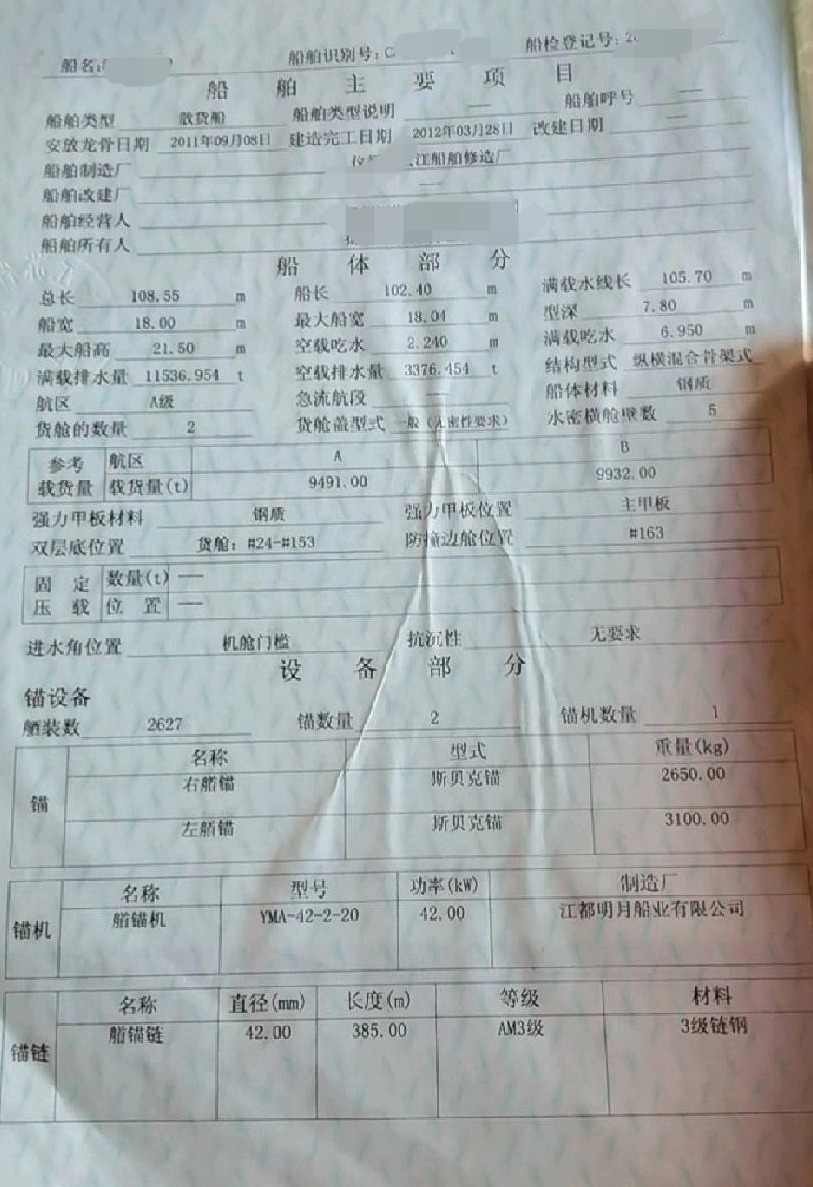 船名:
船舶识别号: C
船检登记号: 2
船舶主要项目
船舶类型 散货船 船舶类型说明 — 船舶呼号 —
安放龙骨日期 2011年09月08日 建造完工日期 2012年03月28日 改建日期 —
船舶制造厂 江船舶修造厂
船舶改建厂 —
船舶经营人
船舶所有人
船体部分
总长 108.55 m 船长 102.40 m 满载水线长 105.70 m
船宽 18.00 m 最大船宽 18.04 m 型深 7.80 m
最大船高 21.50 m 空载吃水 2.240 m 满载吃水 6.950 m
满载排水量 11536.954 t 空载排水量 3376.454 t 结构型式 纵横混合骨架式
航区 A级 急流航段 — 船体材料 钢质
货舱的数量 2 货舱盖型式 一般(无密性要求) 水密横舱壁数 5
参考载货量 航区 A B
载货量(t) 9491.00 9932.00
强力甲板材料 钢质 强力甲板位置 主甲板
双层底位置 货舱: #24-#153 防撞边舱位置 #163
固定压载 数量(t) —
位置 —
进水角位置 机舱门槛 抗沉性 无要求
设备部分
锚设备
舾装数 2627 锚数量 2 锚机数量 1
锚 名称 型式 重量(kg)
右艏锚 斯贝克锚 2650.00
左艏锚 斯贝克锚 3100.00
锚机 名称 型号 功率(kW) 制造厂
艏锚机 YMA-42-2-20 42.00 江都明月船业有限公司
锚链 名称 直径(mm) 长度(m) 等级 材料
艏锚链 42.00 385.00 AM3级 3级链钢